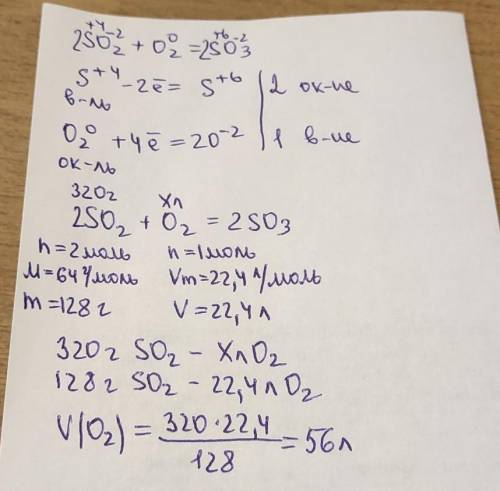 +4 -2 0 +6 -2
2SO₂ + O₂ = 2SO₃
S⁺⁴ - 2ē = S⁺⁶ | 2 ок-ие
в-ль
O₂⁰ + 4ē = 2O⁻² | 1 в-ие
ок-ль
320г хл
2SO₂ + O₂ = 2SO₃
n=2моль n=1моль
M=64г/моль Vm=22,4л/моль
m=128г V=22,4л
320г SO₂ - Xл O₂
128г SO₂ - 22,4л O₂
V(O₂) = 320·22,4 / 128 = 56л